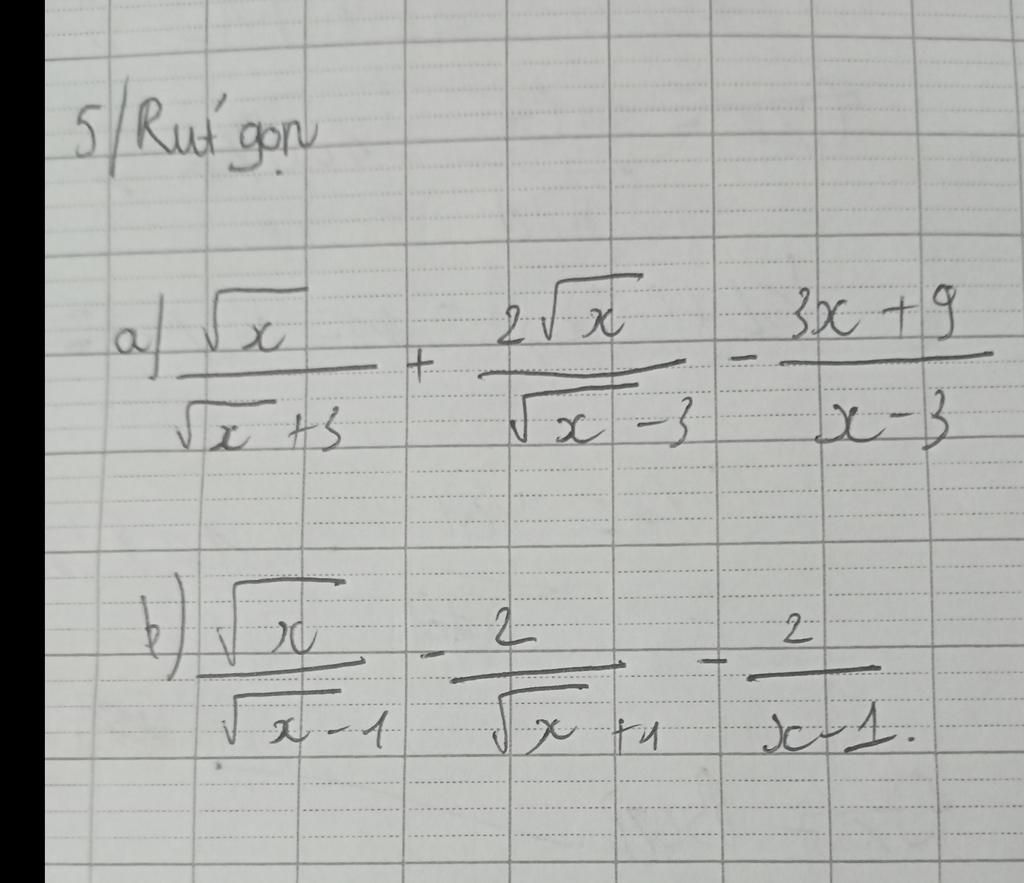 5/ Rút gọn
a) √x / (√x + 3) + 2√x / (√x - 3) - (3x + 9) / (x - 3)
b) √x / (√x - 1) - 2 / (√x + 1) - 2 / (x - 1).